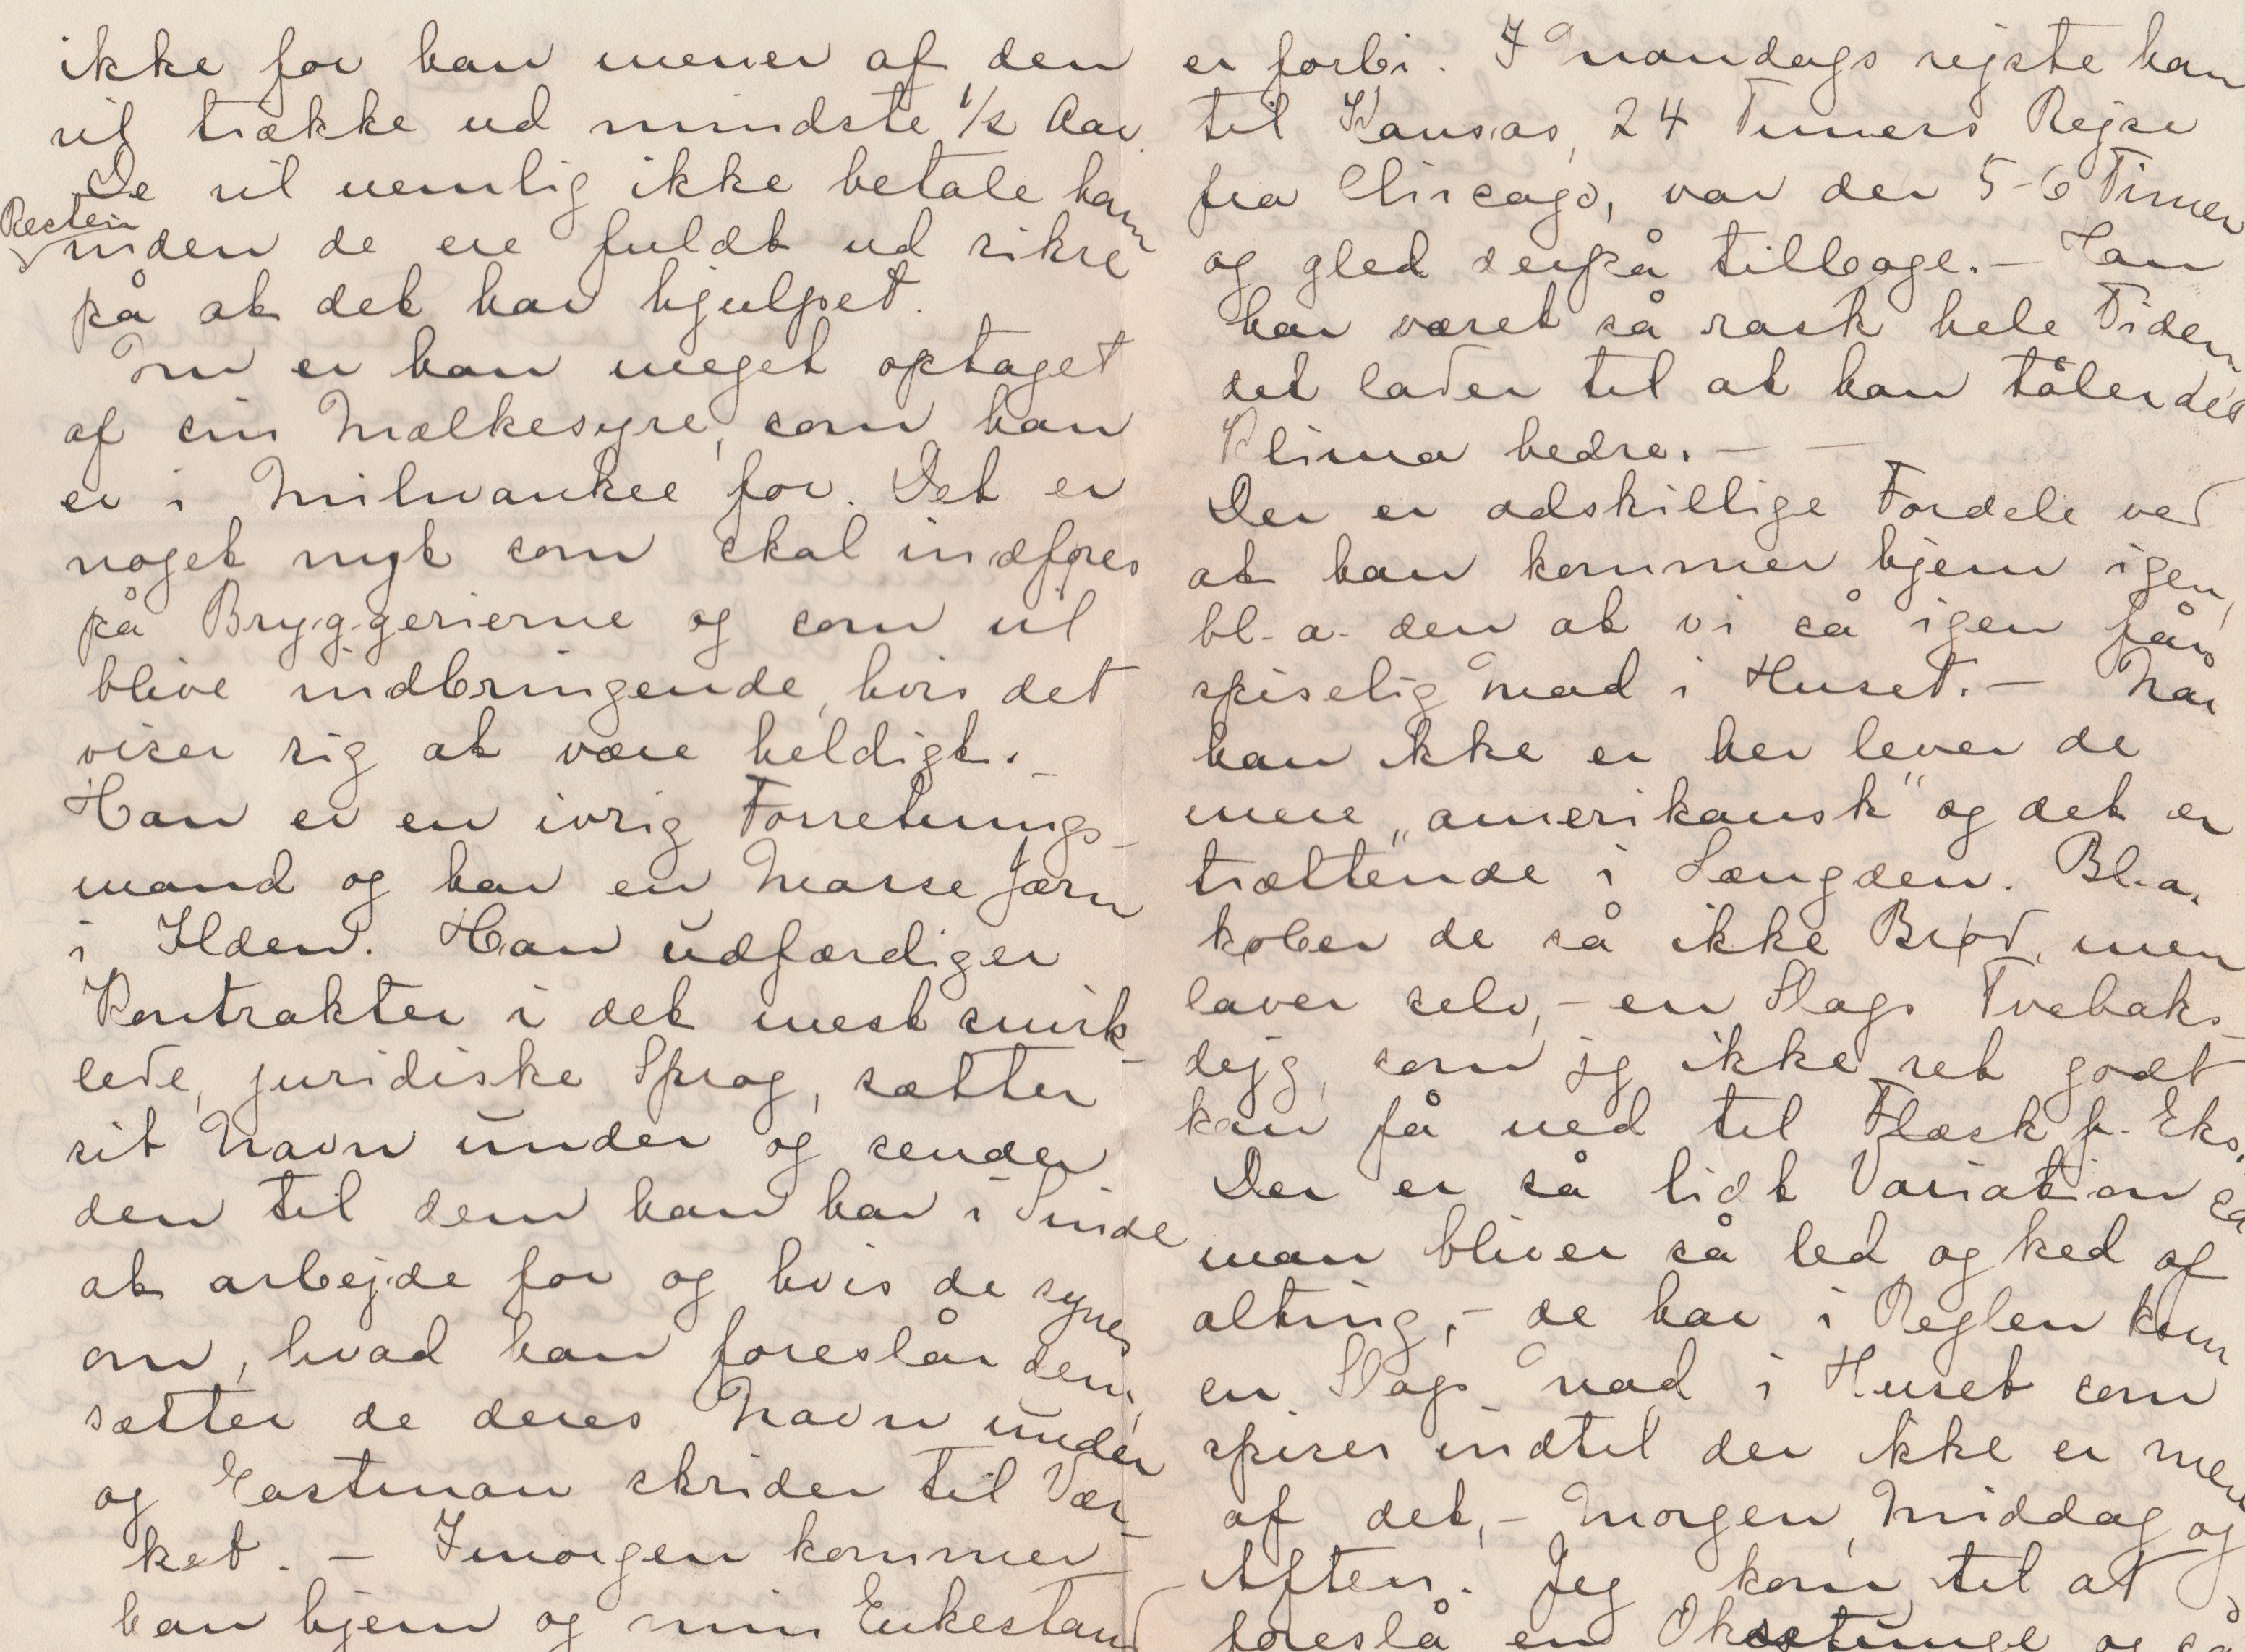 ikke for han mener af den
vil trække ud mindste 1/2 Aar.
De vil nemlig ikke betale ham
Resten
inden de ere fuldt ud sikre
på at det har hjulpet.
Nu er han meget optaget
af sin Mælkesyre, som han
er i Milwaukee for. Det er
noget nyt som skal indføres
på Bryggerierne og som vil
blive indbringende, hvis det
viser sig at være heldigt. –
Han er en ivrig Forretnings-
mand og har en Masse Jærn
i Ilden. Han udfærdiger
Kontrakter i det mest snirk-
lede, juridiske Sprog, sætter
sit Navn under og sender
den til dem han har i Sinde
at arbejde for og hvis de synes
om, hvad han foreslår dem,
sætter de deres Navn under
og Eastman skrider til Vær-
ket. – Imorgen kommer
han hjem og min Enkestand
er forbi. I Mandags rejste han
til Kansas, 24 Timers Rejse
fra Chicago, var der 5-6 Timer
og gled derpå tilbage. – Han
har været så rask hele Tiden,
det lader til at han tåler det
Klima bedre. – –
Der er adskillige Fordele ved
at han kommer hjem igen,
bl. a. den at vi så igen får
spiselig Mad i Huset. – Når
han ikke er her lever de
mere „amerikansk“ og det er
trættende i Længden. Bl.a.
køber de så ikke Brød, men
laver selv, – en Slags Tvebaks-
dejg, som jeg ikke ret godt
kan få ned til Flæsk f. Eks.
Der er så lidt Variation så
man bliver så led og ked af
alting, – de har i Reglen kun
en Slags Mad i Huset som
spises indtil der ikke er mere
af det, – Morgen, Middag og
Aften. Jeg kom til at
foreslå en Oksetunge og så